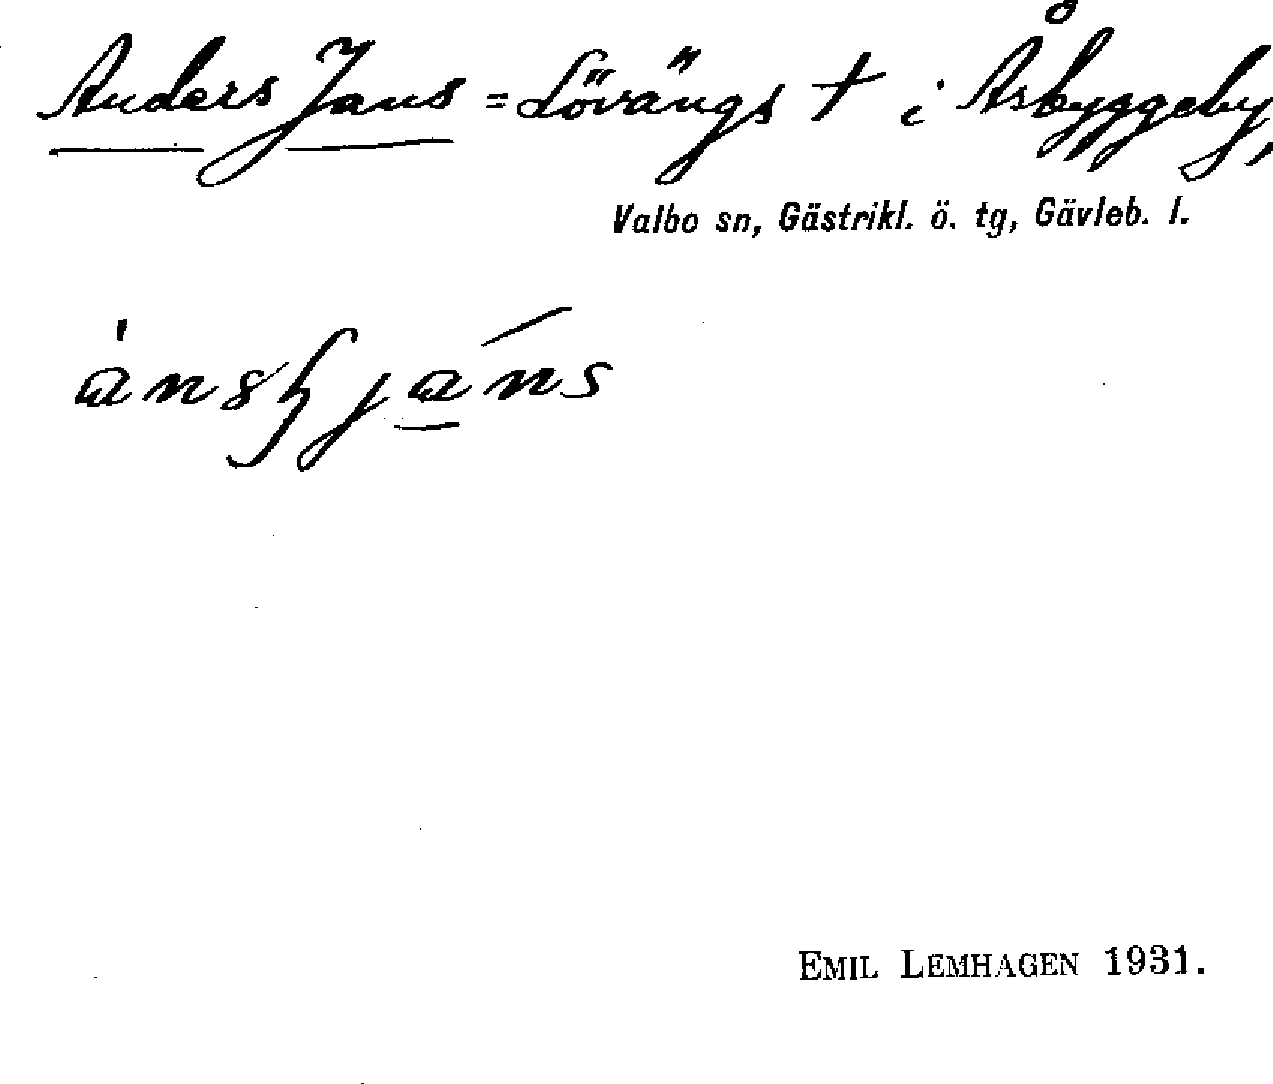 Anders Jans = Lövängs † i Åsbyggeby,
Valbo sn, Gästrikl. ö. tg, Gävleb. l.
EMIL LEMHAGEN 1931.